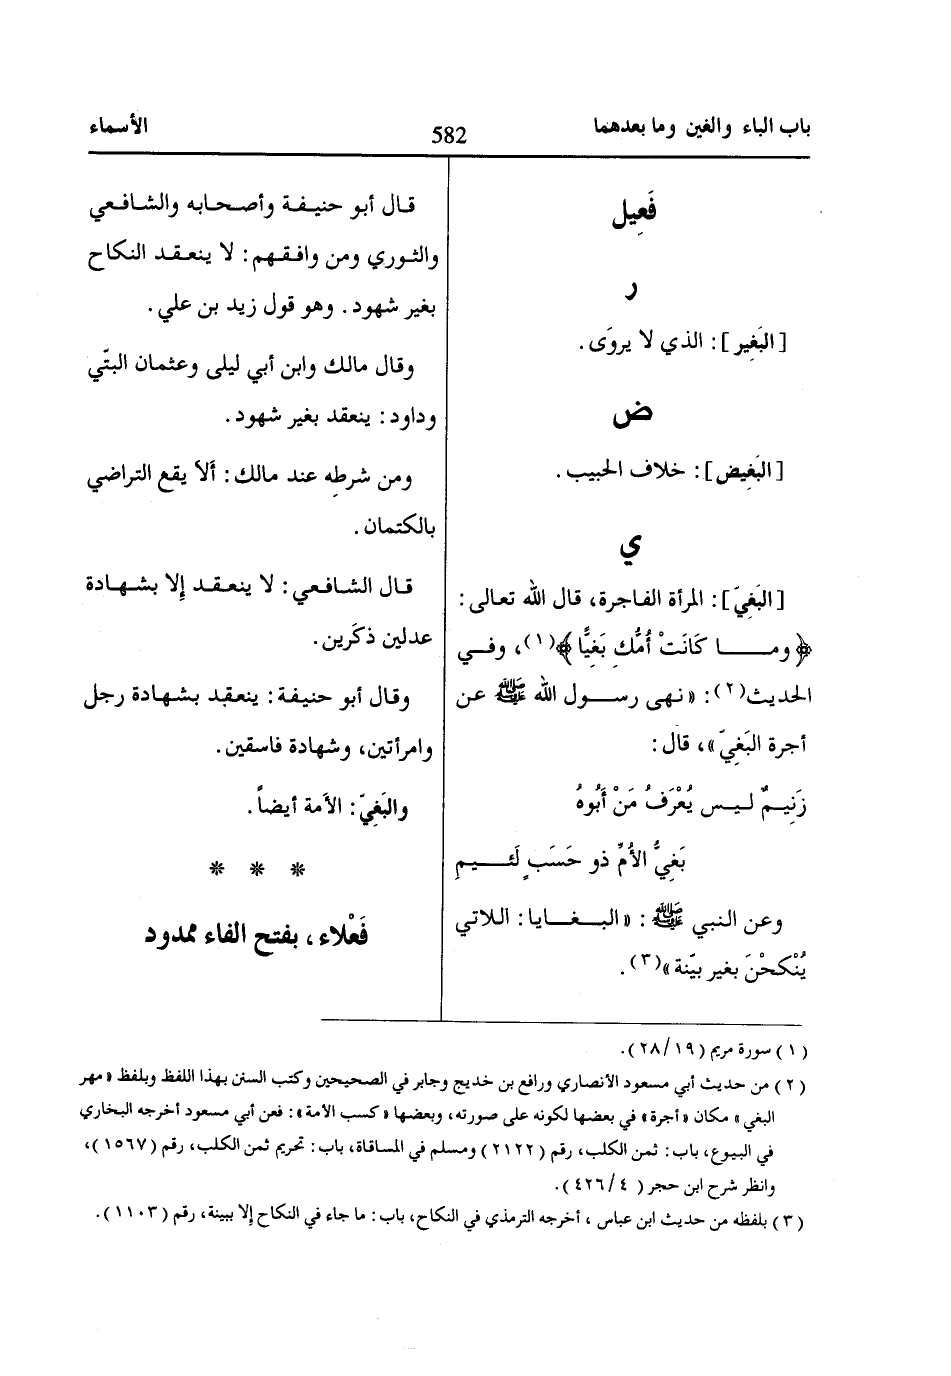 باب الباء والغين وما بعدهما
582
الأسماء
فَعِيل
ر
[البَغِير]: الذي لا يروَى.
ض
[البَغِيض]: خلاف الحبيب.
ي
[البَغِيّ]: المرأة الفاجرة، قال الله تعالى:
﴿ومــا كَانَتْ أُمُّكِ بَغِيًّا﴾(١)، وفــي
الحديث(٢): «نهى رســول الله ﷺ عن
أجرة البَغِيّ»، قال:
زَنِيمٌ ليــس يُعْرَفُ مَنْ أَبُوهُ
بَغِيُّ الأُمِّ ذو حَسَبٍ لَئــيمِ
وعن النبي ﷺ: «البــغــايا: اللاتي
يُنْكَحْنَ بغير بيّنة»(٣).
قال أبو حنيفة وأصحابه والشافعي
والثوري ومن وافقهم: لا ينعقد النكاح
بغير شهود. وهو قول زيد بن علي.
وقال مالك وابن أبي ليلى وعثمان البتّي
وداود: ينعقد بغير شهود.
ومن شرطِه عند مالك: ألاّ يقع التراضي
بالكتمان.
قال الشافعي: لا ينعقد إلا بشهادة
عدلين ذكَرين.
وقال أبو حنيفة: ينعقد بشهادة رجل
وامرأتين، وشهادة فاسقين.
والبَغِيّ: الأمة أيضاً.
* * *
فَعْلاء، بفتح الفاء ممدود
(١) سورة مريم (٢٨/١٩).
(٢) من حديث أبي مسعود الأنصاري ورافع بن خديج وجابر في الصحيحين وكتب السنن بهذا اللفظ وبلفظ «مهر
البغي» مكان «أجرة» في بعضها لكونه على صورته، وبعضها «كسب الأمة»: فعن أبي مسعود أخرجه البخاري
في البيوع، باب: ثمن الكلب، رقم (٢١٢٢) ومسلم في المساقاة، باب: تحريم ثمن الكلب، رقم (١٥٦٧)،
وانظر شرح ابن حجر (٤٢٦/٤).
(٣) بلفظه من حديث ابن عباس، أخرجه الترمذي في النكاح، باب: ما جاء في النكاح إلا ببينة، رقم (١١٠٣).